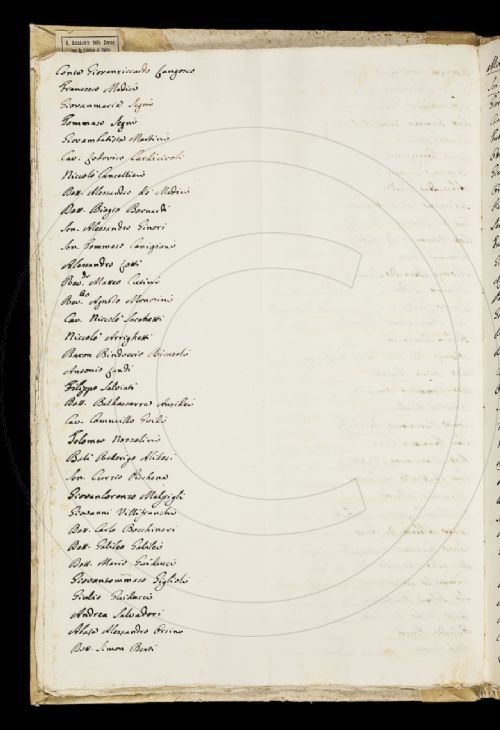 R. Accademia della Crusca
Conte Giovanriccardo
Francesco Medici
Giovanmaria Segni
Tommaso Segni
Giovambatista Martini
Cav. Lodovico
Niccolò Cancellieri
Dott. Alessandro de Medici
Dott. Biagio Bernardi
Sen. Alessandro Ginori
Sen. Tommaso Canigiani
Alessandro
Rev.do Matteo Cutini
Rev.do Agnolo Monosini
Cav. Niccolò Sacchetti
Niccolò Arrighetti
Baron Bindaccio Ricasoli
Antonio Landi
Filippo Salviati
Dott. Baldassarre
Cav. Cammillo Guidi
Tolomeo Nozzolini
Balì Arrigo
Sen. Curzio Pichena
Giovanlorenzo Malpigli
Giovanni Villifranchi
Dott. Carlo Bocchineri
Dott. Galileo Galilei
Dott. Mario Guiducci
Giovantommaso Giglioli
Giulio Guiducci
Andrea Salvadori
Abate Alessandro Orsino
Dott. Simon Berti